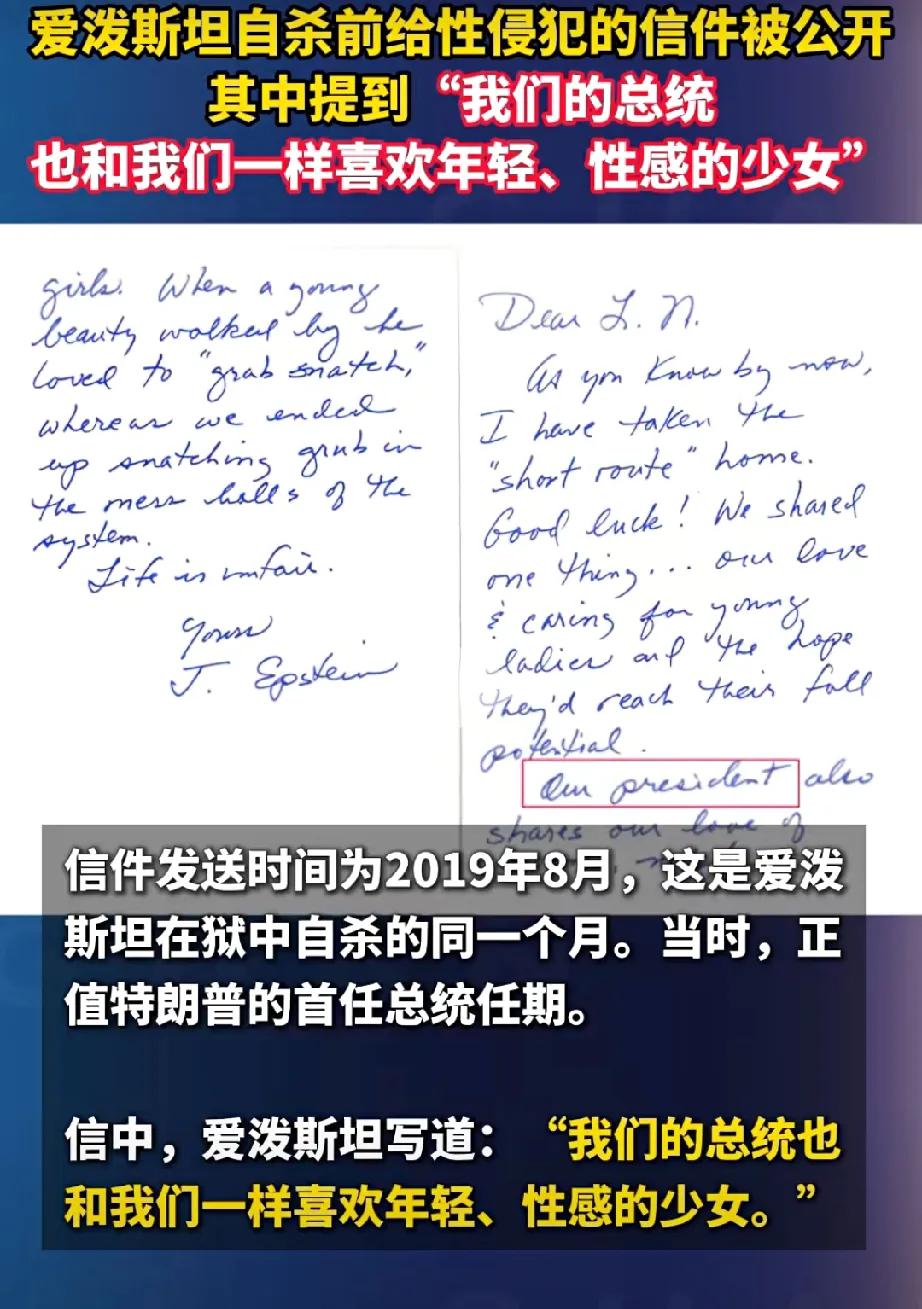 爱泼斯坦自杀前给性侵犯的信件被公开
其中提到“我们的总统
也和我们一样喜欢年轻、性感的少女”
girls. When a young
beauty walked by he
loved to "grab snatch,"
whereas we ended
up snatching grub in
the mess halls of the
system.
Life is unfair.
Yours
J. Epstein
Dear L. N.
As you know by now,
I have taken the
"short route" home.
Good luck! We shared
one thing... our love
& caring for young
ladies and the hope
they'd reach their full
potential.
Our president also
shares our love of
信件发送时间为2019年8月，这是爱泼
斯坦在狱中自杀的同一个月。当时，正
值特朗普的首任总统任期。
信中，爱泼斯坦写道：“我们的总统也
和我们一样喜欢年轻、性感的少女。”